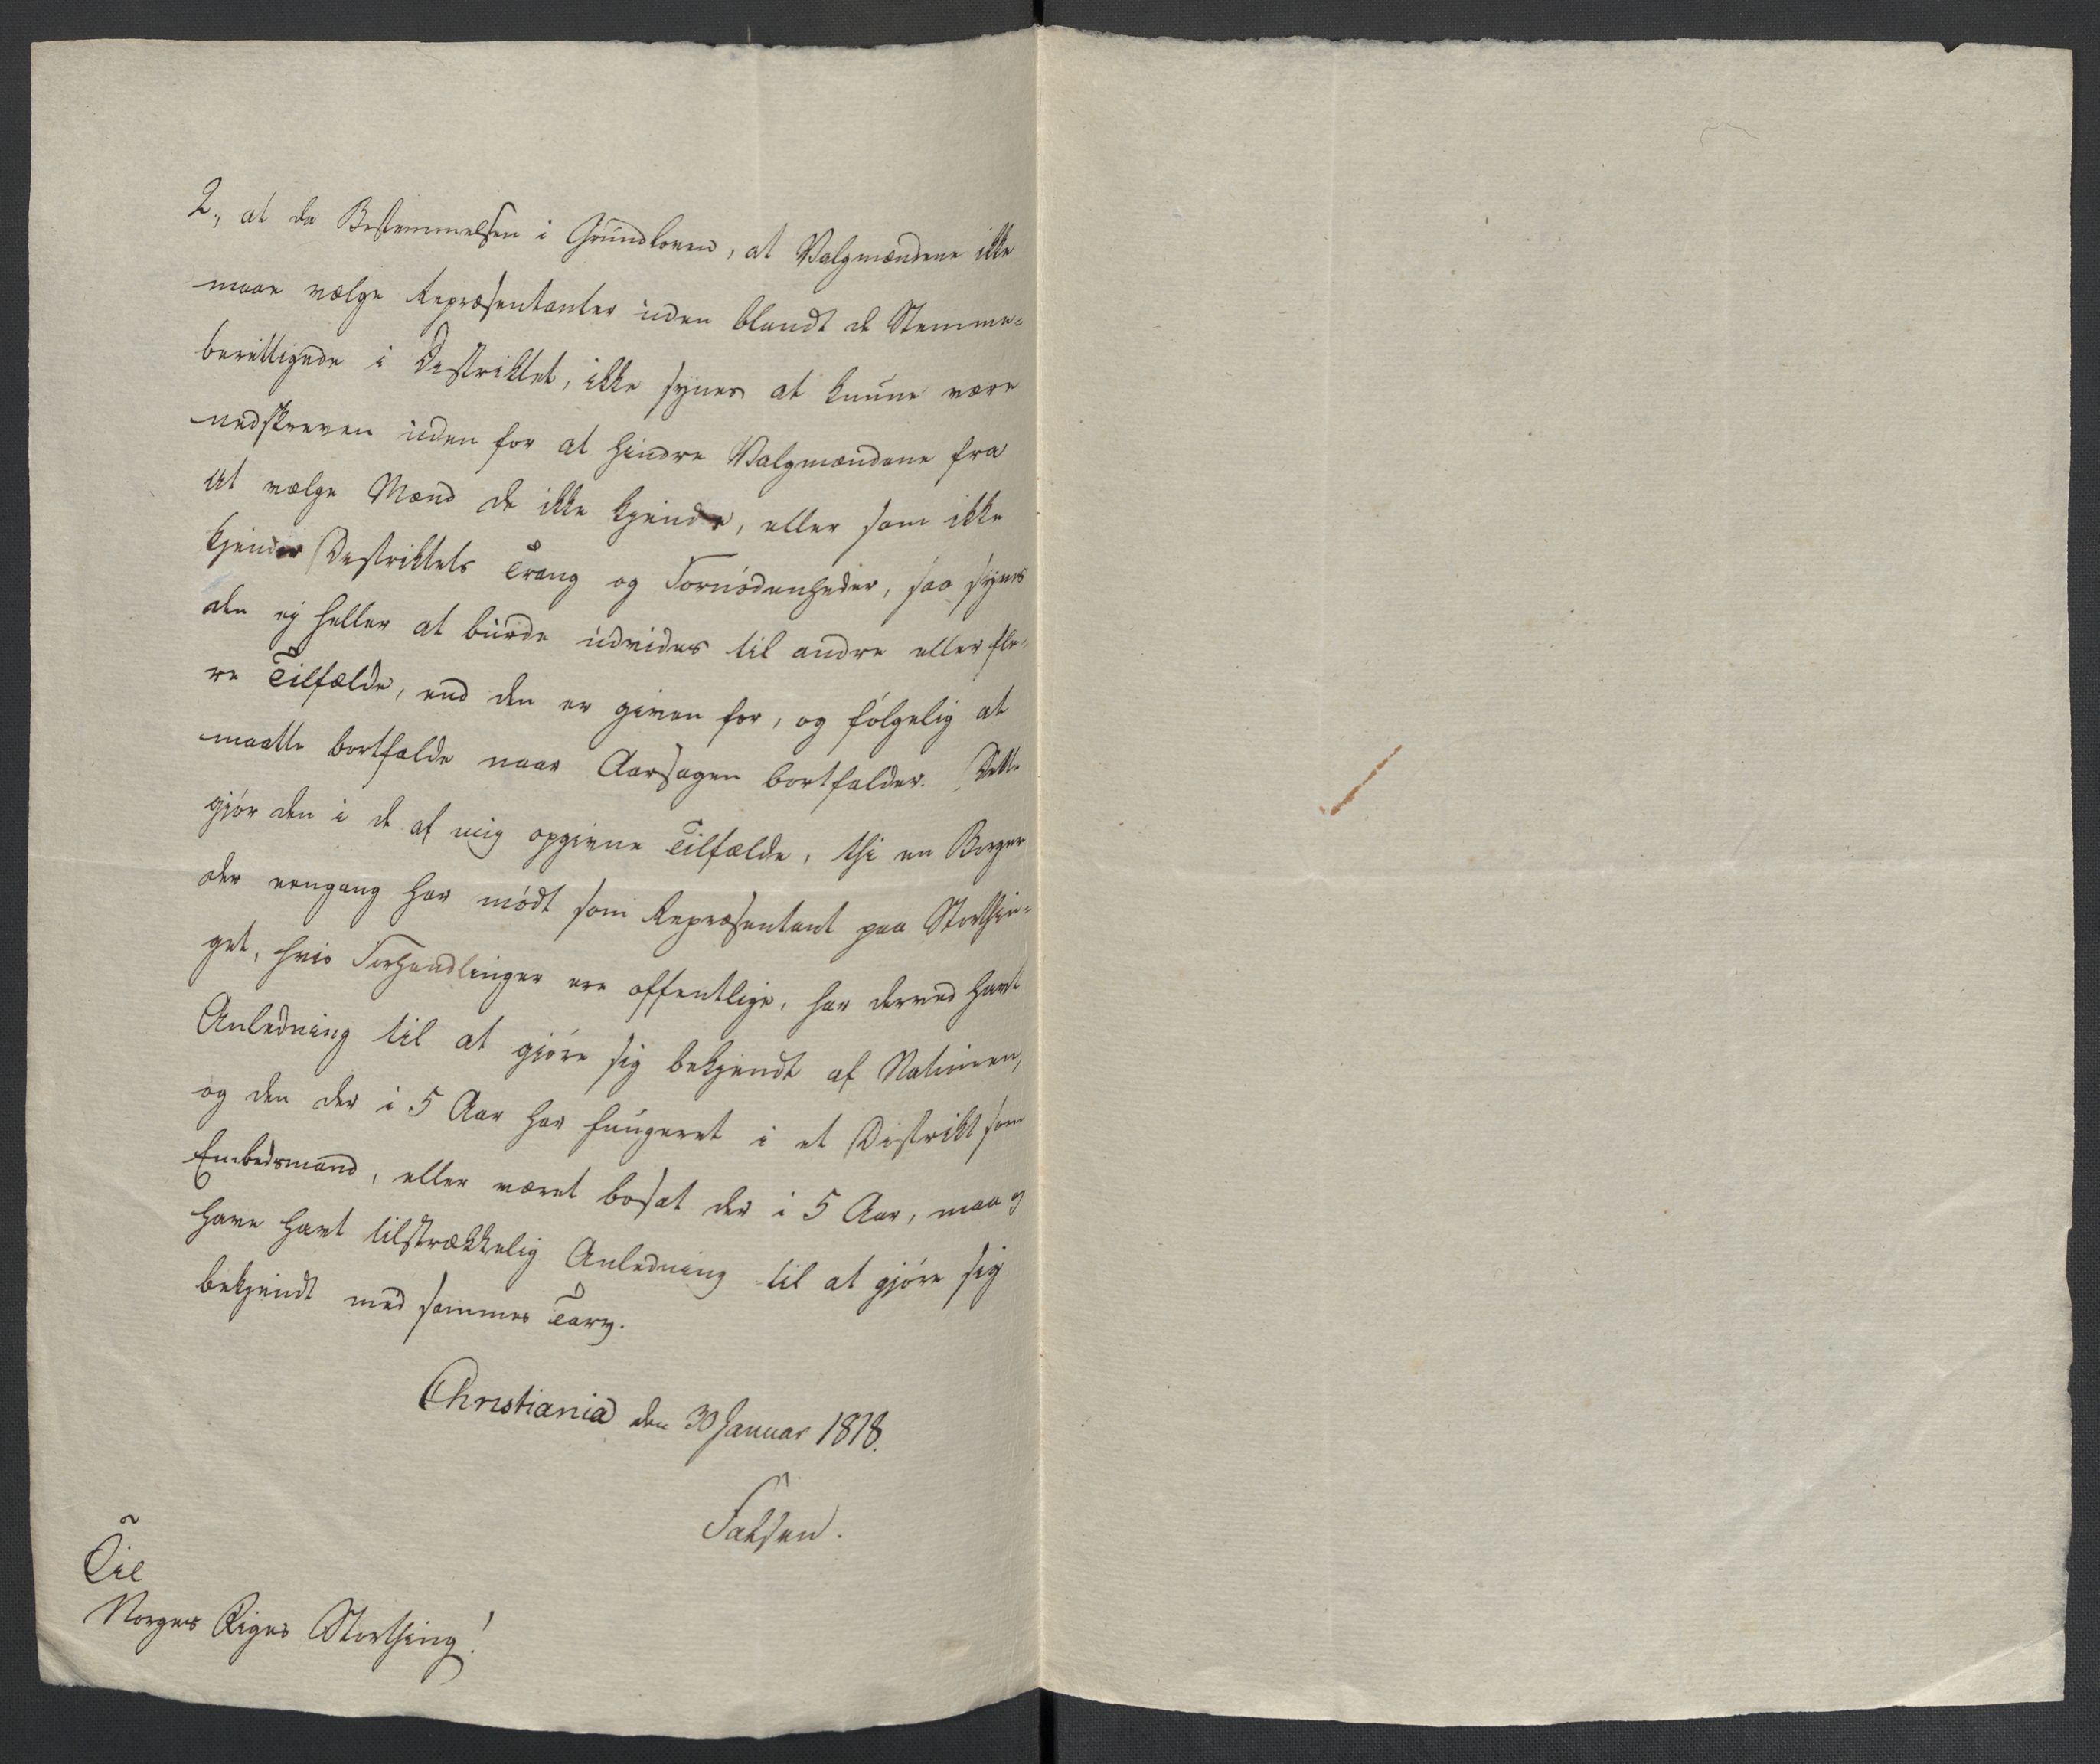 2., at da Bestemmelsen i Grundloven, at Valgmændene ikke
maae vælge Repræsentanter uden blandt de Stemme-
berettigede i Distriktet, ikke synes at kunne være
nedskreven uden for at hindre Valgmændene fra
at vælge Mænd de ikke kjende, eller som ikke
kjender Distriktets Trang og Fornødenheder, saa synes
den ej heller at burde udvides til andre eller fle-
re Tilfælde, end den er given for, og følgelig at
maatte bortfalde naar Aarsagen bortfalder. Dette
gjør den i de af mig opgivne Tilfælde, thi en Borger
der eengang har mødt som Repræsentant paa Storthin-
get, hvis Forhandlinger ere offentlige, har derved havt
Anledning til at gjøre sig bekjendt af Nationen,
og den der i 5 Aar har fungeret i et Distrikt som
Embedsmand, eller været bosat der i 5 Aar, maa og
have havt tilstrækkelig Anledning til at gjøre sig
bekjendt med sammes Tarv.
Christiania den 30 Januar 1818.
Falsen.
Til
Norges Riges Storthing!